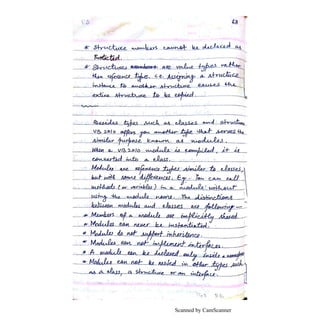 * Structure members cannot be declared as
Protected.
* Structures are value types rather
than reference type. i.e. Assigning a structure
instance to another structure causes the
entire structure to be copied.
Besides types such as classes and structures
VB 2010 offers you another type that serves the
similar purpose known as modules.
When a VB 2010 module is compiled, it is
converted into a class.
Modules are reference types similar to classes,
but with some differences. Eg - You can call
methods (or variables) in a module without
using the module name. The distinctions
between modules and classes are following -
* Members of a module are implicitly shared.
* Modules can never be instantiated.
* Modules do not support inheritence.
* Modules can not implement interfaces.
* A module can be declared only inside a namespace
* Modules can not be nested in other types such
as a class, a structure or an interface.
Scanned by CamScanner